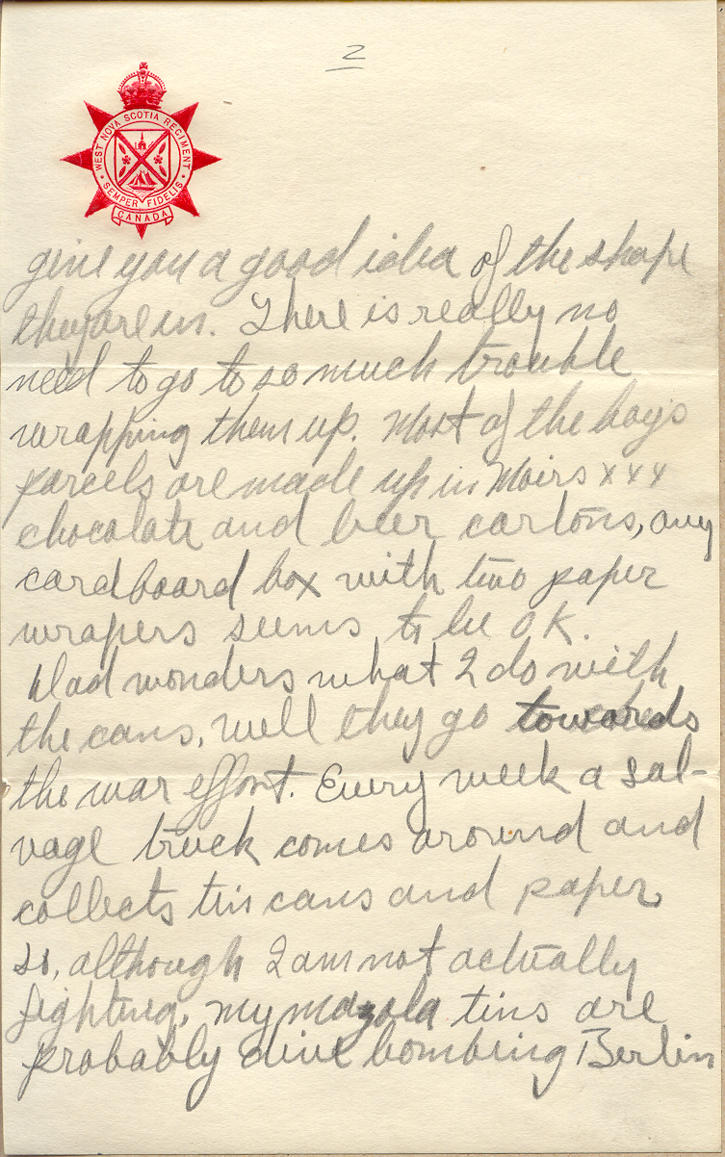 2
WEST NOVA SCOTIA REGIMENT
SEMPER FIDELIS
CANADA
give you a good idea of the shape
they are in. There is really no
need to go to so much trouble
wrapping them up. Most of the boys
parcels are made up in Moirs xxx
chocolate and beer cartons, any
cardboard box with two paper
wrapers seems to be OK.
Dad wonders what I do with
the cans, well they go towards
the war effort. Every week a sal-
vage truck comes around and
collects tin cans and paper,
so, although I am not actually
fighting, my mazola tins are
probably dive bombing Berlin